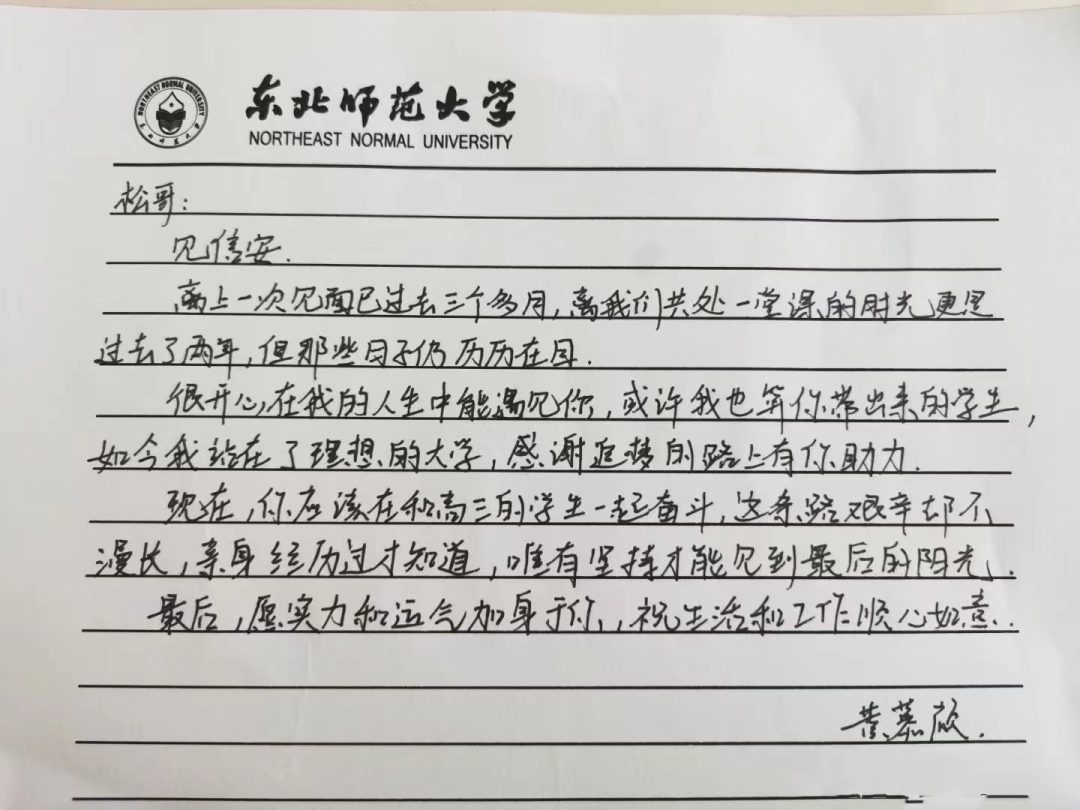 东北师范大学
NORTHEAST NORMAL UNIVERSITY
NORTHEAST NORMAL UNIVERSITY
东北师范大学
松哥:
见信安.
离上一次见面已过去三个多月,离我们共处一堂课的时光更是
过去了两年,但那些日子仍历历在目.
很开心,在我的人生中能遇见你,或许我也算你带出来的学生,
如今我站在了理想的大学,感谢追梦的路上有你助力.
现在,你应该在和高三的学生一起奋斗,这条路艰辛却不
漫长,亲身经历过才知道,唯有坚持才能见到最后的阳光.
最后,愿实力和运气加身于你,祝生活和工作顺心如意.
黄慕欣.